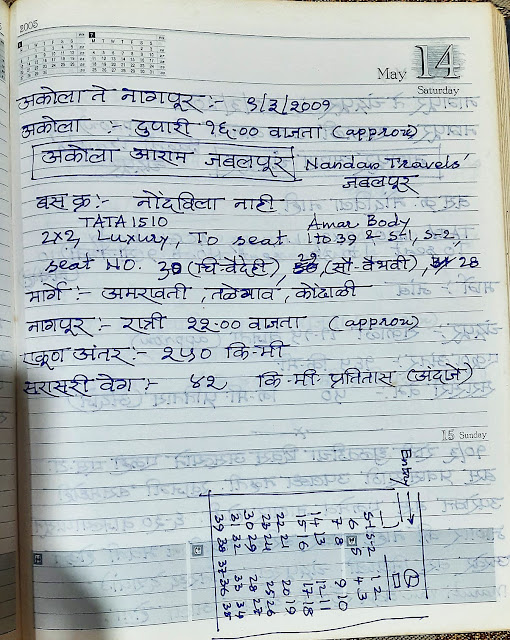 2005
May 14
Saturday
अकोला ते नागपूर :- ९/३/२००९
अकोला :- दुपारी १६:०० वाजता (approx)
अकोला आराम जबलपूर Nandan Travels'
जबलपूर
बस क्र :- नोंदविला नाही.
TATA 1510 Amar Body
2x2, Luxury, To seat 1 to 39 & S-1, S-2,
seat NO. (चि-वैदेही), 29 (सौ-वैभवी), 28
मार्ग :- अमरावती, तळेगाव, कोंढाळी
नागपूर :- रात्री २२:०० वाजता (approx)
एकूण अंतर :- २५० कि-मी
सरासरी वेग :- ४२ कि-मी प्रतितास (अंदाजे)
15 Sunday
Entry
S-1 S-2 1 2
6 5 4 3
7 8 9 10
14 13 12 11
15 16 17 18
22 21 20 19
23 24 25 26
30 29 28 27
31 32 33 34
39 38 37 36 35